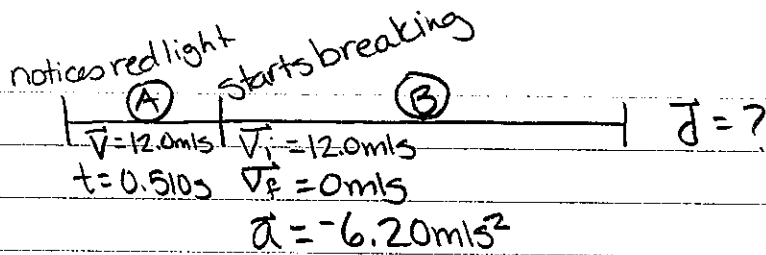 notices red light
starts breaking
A
B
d⃗ = ?
v⃗ = 12.0m/s
t = 0.510s
v⃗i = 12.0m/s
v⃗f = 0m/s
a⃗ = -6.20m/s²